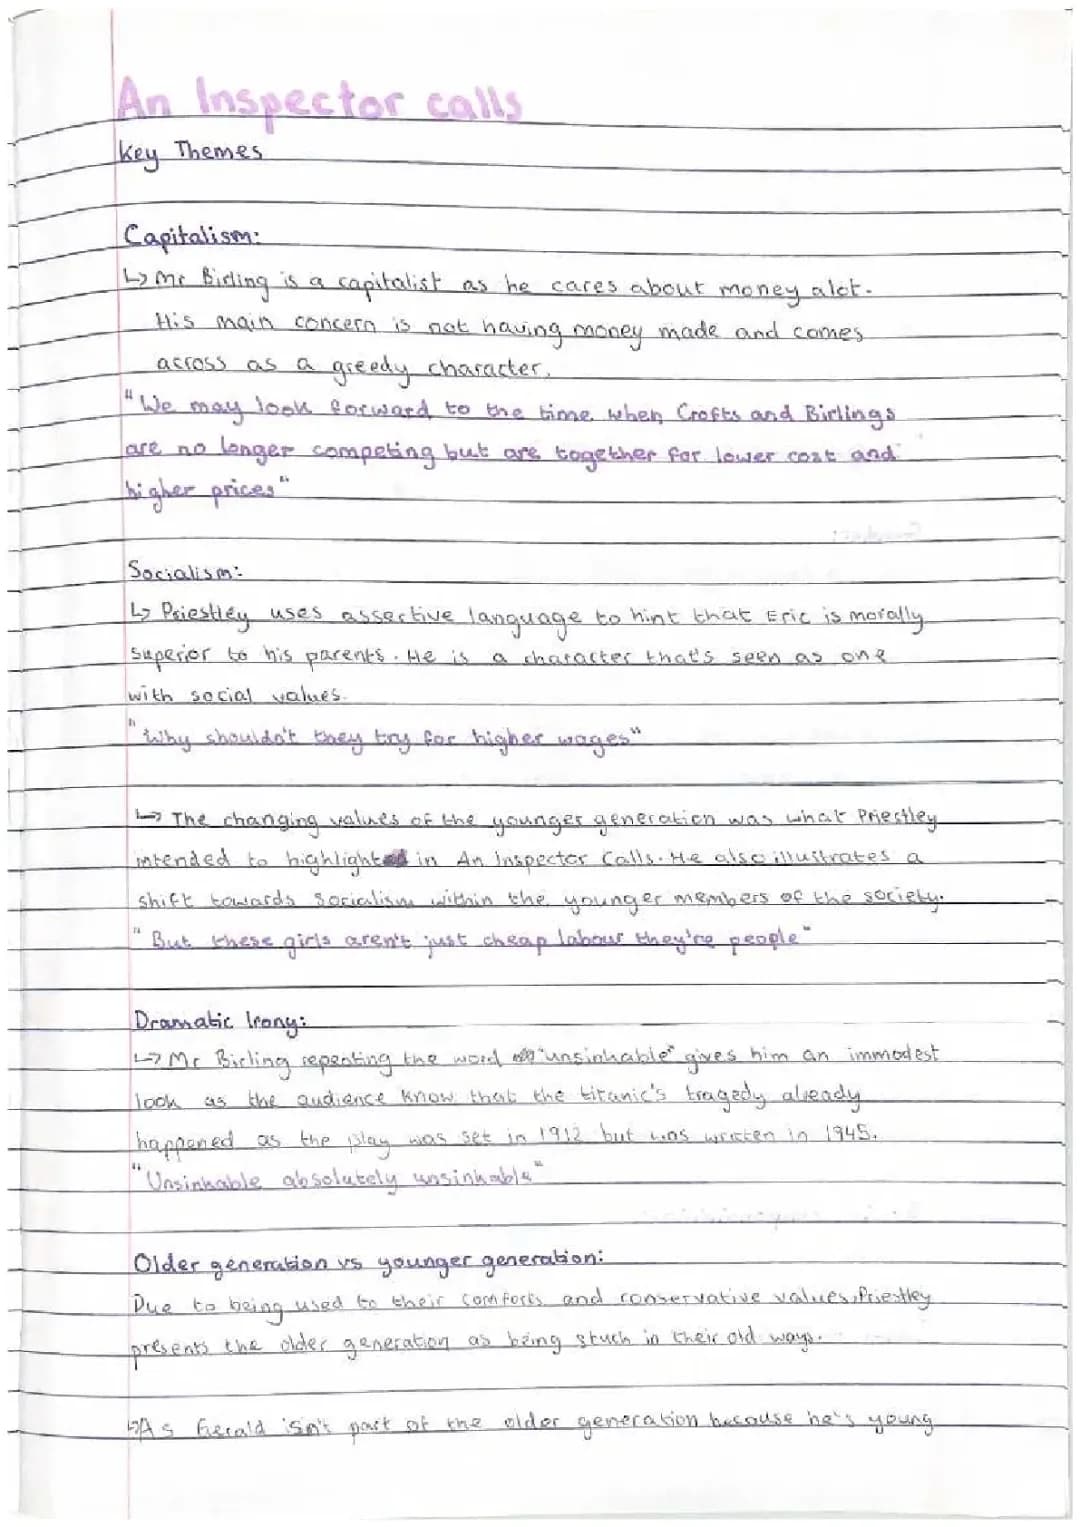 An Inspector calls
Key Themes
Capitalism:
↳ Mr Birling is a capitalist as he cares about money alot.
His main concern is not having money made and comes
across as a greedy character.
"We may look forward to the time when Crofts and Birlings
are no longer competing but are together for lower cost and
higher prices"
Socialism:
↳ Priestley uses assertive language to hint that Eric is morally
superior to his parents. He is a character that's seen as one
with social values.
"Why shouldn't they try for higher wages"
↳ The changing values of the younger generation was what Priestley
intended to highlight in An Inspector Calls. He also illustrates a
shift towards Socialism within the younger members of the society.
"But these girls aren't just cheap labour they're people"
Dramatic Irony:
↳ Mr Birling repeating the word "unsinkable" gives him an immodest
look as the audience know that the titanic's tragedy already
happened as the play was set in 1912 but was written in 1945.
"Unsinkable absolutely unsinkable"
Older generation vs younger generation:
Due to being used to their comforts and conservative values, Priestley
presents the older generation as being stuck in their old ways.
↳ As Gerald isn't part of the older generation because he's young